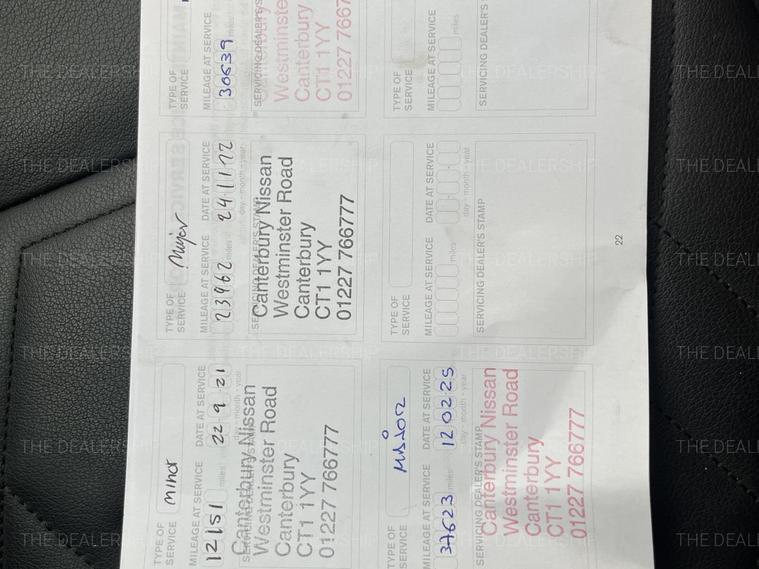 TYPE OF
SERVICE
Minor
MILEAGE AT SERVICE
DATE AT SERVICE
12151
miles
22 9 21
day - month - year
Canterbury Nissan
Westminster Road
Canterbury
CT1 1YY
01227 766777
TYPE OF
SERVICE
Major
MILEAGE AT SERVICE
DATE AT SERVICE
23962
miles
day - month - year
Canterbury Nissan
Westminster Road
Canterbury
CT1 1YY
01227 766777
TYPE OF
SERVICE
MILEAGE AT SERVICE
30639
SERVICING DEALER'S
Canterbury
Westminste
Canterbury
CT1 1YY
01227 7667
TYPE OF
SERVICE
MAJOR
MILEAGE AT SERVICE
DATE AT SERVICE
37623
miles
12 02 25
day - month - year
SERVICING DEALER'S STAMP
Canterbury Nissan
Westminster Road
Canterbury
CT1 1YY
01227 766777
TYPE OF
SERVICE
MILEAGE AT SERVICE
DATE AT SERVICE
miles
day - month - year
SERVICING DEALER'S STAMP
TYPE OF
SERVICE
MILEAGE AT SERVICE
miles
SERVICING DEALER'S
22
THE DEALERSHIP